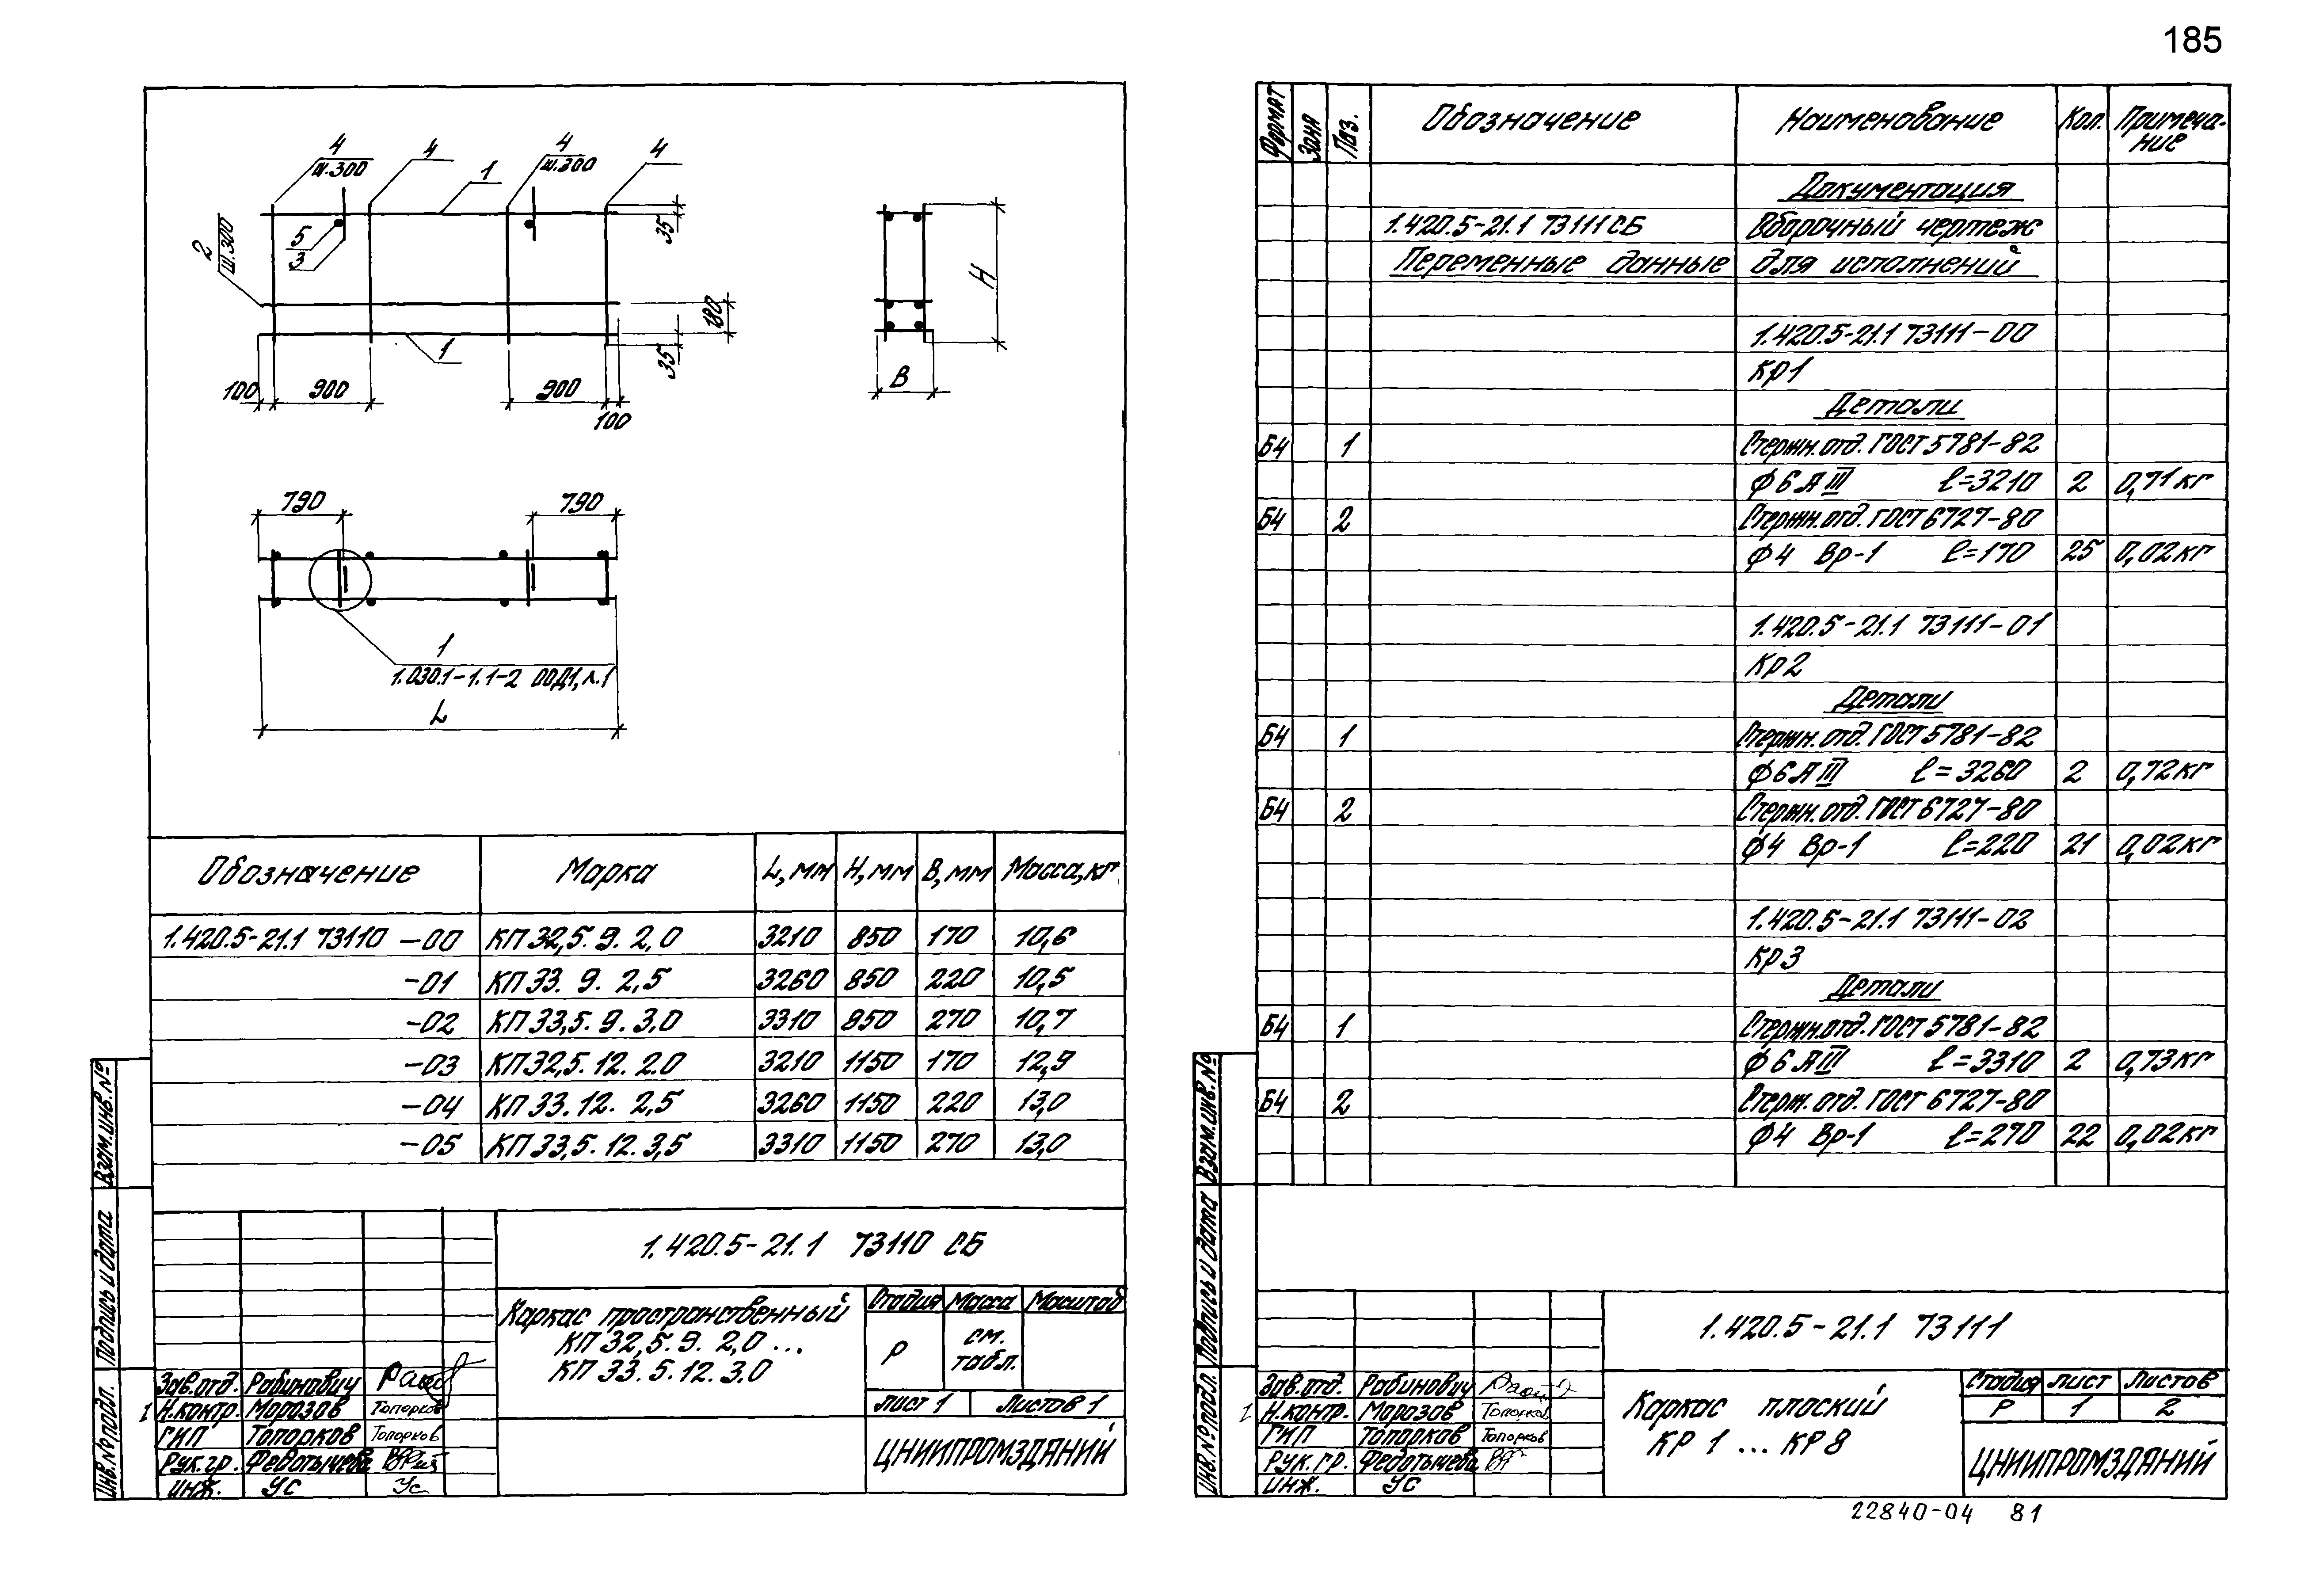 185
4
ш.300
4
1
4
ш.300
4
2
ш.300
5
3
35
180
35
1
100
900
900
100
H
B
790
790
1
1.030.1-1.1-2 00Д1, л.1
L
Обозначение Марка L, мм H, мм B, мм Масса, кг
1.420.5-21.1 73110 -00 КП 32,5. 9. 2,0 3210 850 170 10,6
-01 КП 33. 9. 2,5 3260 850 220 10,5
-02 КП 33,5. 9. 3,0 3310 850 270 10,7
-03 КП 32,5. 12. 2.0 3210 1150 170 12,9
-04 КП 33. 12. 2,5 3260 1150 220 13,0
-05 КП 33,5. 12. 3,5 3310 1150 270 13,0
1.420.5-21.1 73110 СБ
Каркас пространственный
КП 32,5. 9. 2,0 ...
КП 33. 5. 12. 3.0
Стадия Масса Масштаб
Р см. табл.
Лист 1 Листов 1
ЦНИИПРОМЗДАНИЙ
Зав.отд. Рабинович
Н.контр. Морозов Топорков
ГИП Топорков Топорков
Рук.гр. Федотычева
Инж. Ус Ус
Взам.инв.№
Подпись и дата
Инв.№ подл.
1
Формат Зона Поз. Обозначение Наименование Кол. Примеча-
ние
Документация
1.420.5-21.1 73111СБ Сборочный чертеж
Переменные данные для исполнений
1.420.5-21.1 73111-00
Кр1
Детали
Б4 1 Стержн.отд. ГОСТ 5781-82
Ф6АIII l=3210 2 0,71кг
Б4 2 Стержн.отд. ГОСТ 6727-80
Ф4 Вр-1 l=170 25 0,02кг
1.420.5-21.1 73111-01
Кр2
Детали
Б4 1 Стержн.отд. ГОСТ 5781-82
Ф6АIII l=3260 2 0,72кг
Б4 2 Стержн.отд. ГОСТ 6727-80
Ф4 Вр-1 l=220 21 0,02кг
1.420.5-21.1 73111-02
Кр3
Детали
Б4 1 Стержн.отд. ГОСТ 5781-82
Ф6АIII l=3310 2 0,73кг
Б4 2 Стерж.отд. ГОСТ 6727-80
Ф4 Вр-1 l=270 22 0,02кг
1.420.5-21.1 73111
Каркас плоский
КР 1 ... КР 8
Стадия Лист Листов
Р 1 2
ЦНИИПРОМЗДАНИЙ
Зав.отд. Рабинович
Н.контр. Морозов Топорков
ГИП Топорков Топорков
Рук.гр. Федотычева
Инж. Ус
Взам.инв.№
Подпись и дата
Инв.№ подл.
22840-04 81